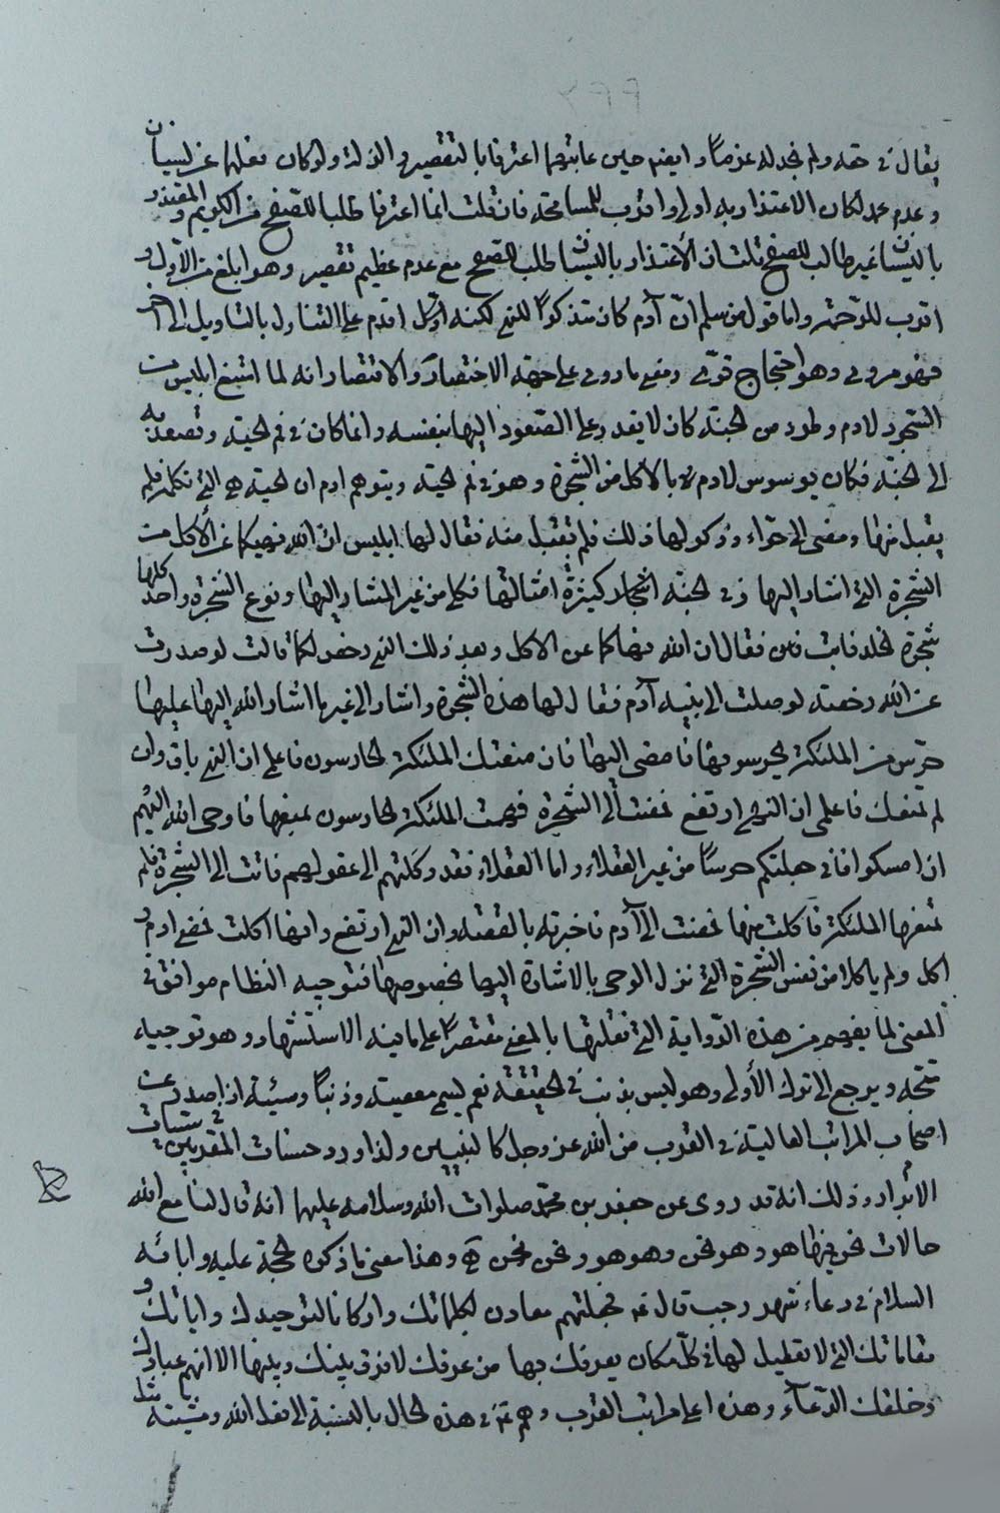 يقال في حقه ولم نجد له عزما وايضا حين عاتبهما اعترفا بالتقصير في الزلة ولو كان فعلها عن نسيان
وعدم عمد لكان الاعتذار به اولى واقرب للمسامحة فان قلت انما اعترفا طلبا للصفح من الكريم والمعتذر
بالنسيان غير طالب للصفح قلت ان الاعتذار بالنسيان طلب الصفح مع عدم عظيم تقصير وهو ابلغ من الاول و
اقرب للترحم واما قول من سلم ان آدم كان متذكرا للنهي لكنه اقدم على التناول بالتاويل الى آخر
فهو مروي وهو احتجاج قوي ومعنى ما روي على جهة الاختصار والاقتصار انه لما امتنع ابليس من
السجود لادم وطرد من الجنة كان لا يقدر على الصعود اليها بنفسه وانما كان في فم الحية وتصعد به
الى الجنة فكان يوسوس لادم بالاكل من الشجرة وهو في فم الحية ويتوهم ادم ان الحية هي التي تكلمه فلم
يقبل منها ومضى الى حواء وذكر لها ذلك فلم تقبل منه فقال لها ابليس ان الله نهيكما عن الاكل من
الشجرة التي اشار اليها وفي الجنة اشجار كثيرة امثالها فكلا من غير المشار اليها ونوع الشجرة واحد كلها
شجرة الخلد فابت فقال ان الله نهاكما عن الاكل وبعد ذلك النهي رخص لكما قالت لو صدرت
عن الله رخصة لوصلت الى نبيه آدم فقال لها هذه الشجرة واشار الى غير ما اشار الله اليها عليها
حرس من الملئكة يحرسونها فامضي اليها فان منعتك الملئكة الحارسون فاعلمي ان النهي باق وان
لم تمنعك فاعلمي ان النهي ارتفع فمضت الى الشجرة فهمت الملئكة الحارسون بمنعها فاوحى الله اليهم
ان امسكوا فاني جعلتكم حرسا من غير العقلاء واما العقلاء فقد وكلتهم الى عقولهم فاتت الى الشجرة فلم
تمنعها الملئكة فاكلت منها فمضت الى آدم فاخبرته بالقصة وان النهي ارتفع وانها اكلت فمضى ادم و
اكل ولم ياكلا من نفس الشجرة التي نزل الوحي بالاشارة اليها بخصوصها فتوجيه النظام موافق في
المعنى لما يفهم من هذه الرواية التي نقلتها بالمعنى مقتصرا على ما فيه الاستشهاد وهو توجيه
متجه ويرجع الى ترك الأولى وهو ليس بذنب في الحقيقة نعم ليسمى معصية وذنبا وسيئة اذا صدر عن
اصحاب المراتب العالية في القرب من الله عز وجل كالنبيين ولذا ورد حسنات المقربين سيئات
الابرار وذلك انه قد روى عن جعفر بن محمد صلوات الله وسلامه عليهما انه قال لنا مع الله
حالات نحن فيها هو وهو نحن وهو هو ونحن نحن وهذا معنى ما ذكره الحجة عليه وابائه
السلام في دعاء شهر رجب قال فجعلتهم معادن لكلماتك واركانا لتوحيدك واياتك و
مقاماتك التي لا تعطيل لها في كل مكان يعرفك بها من عرفك لا فرق بينك وبينها الا انهم عبادك
وخلقك الدعآء وهذا اعلى مراتب القرب وهم في هذه الحال بالنسبة الى فعل الله ومشيته